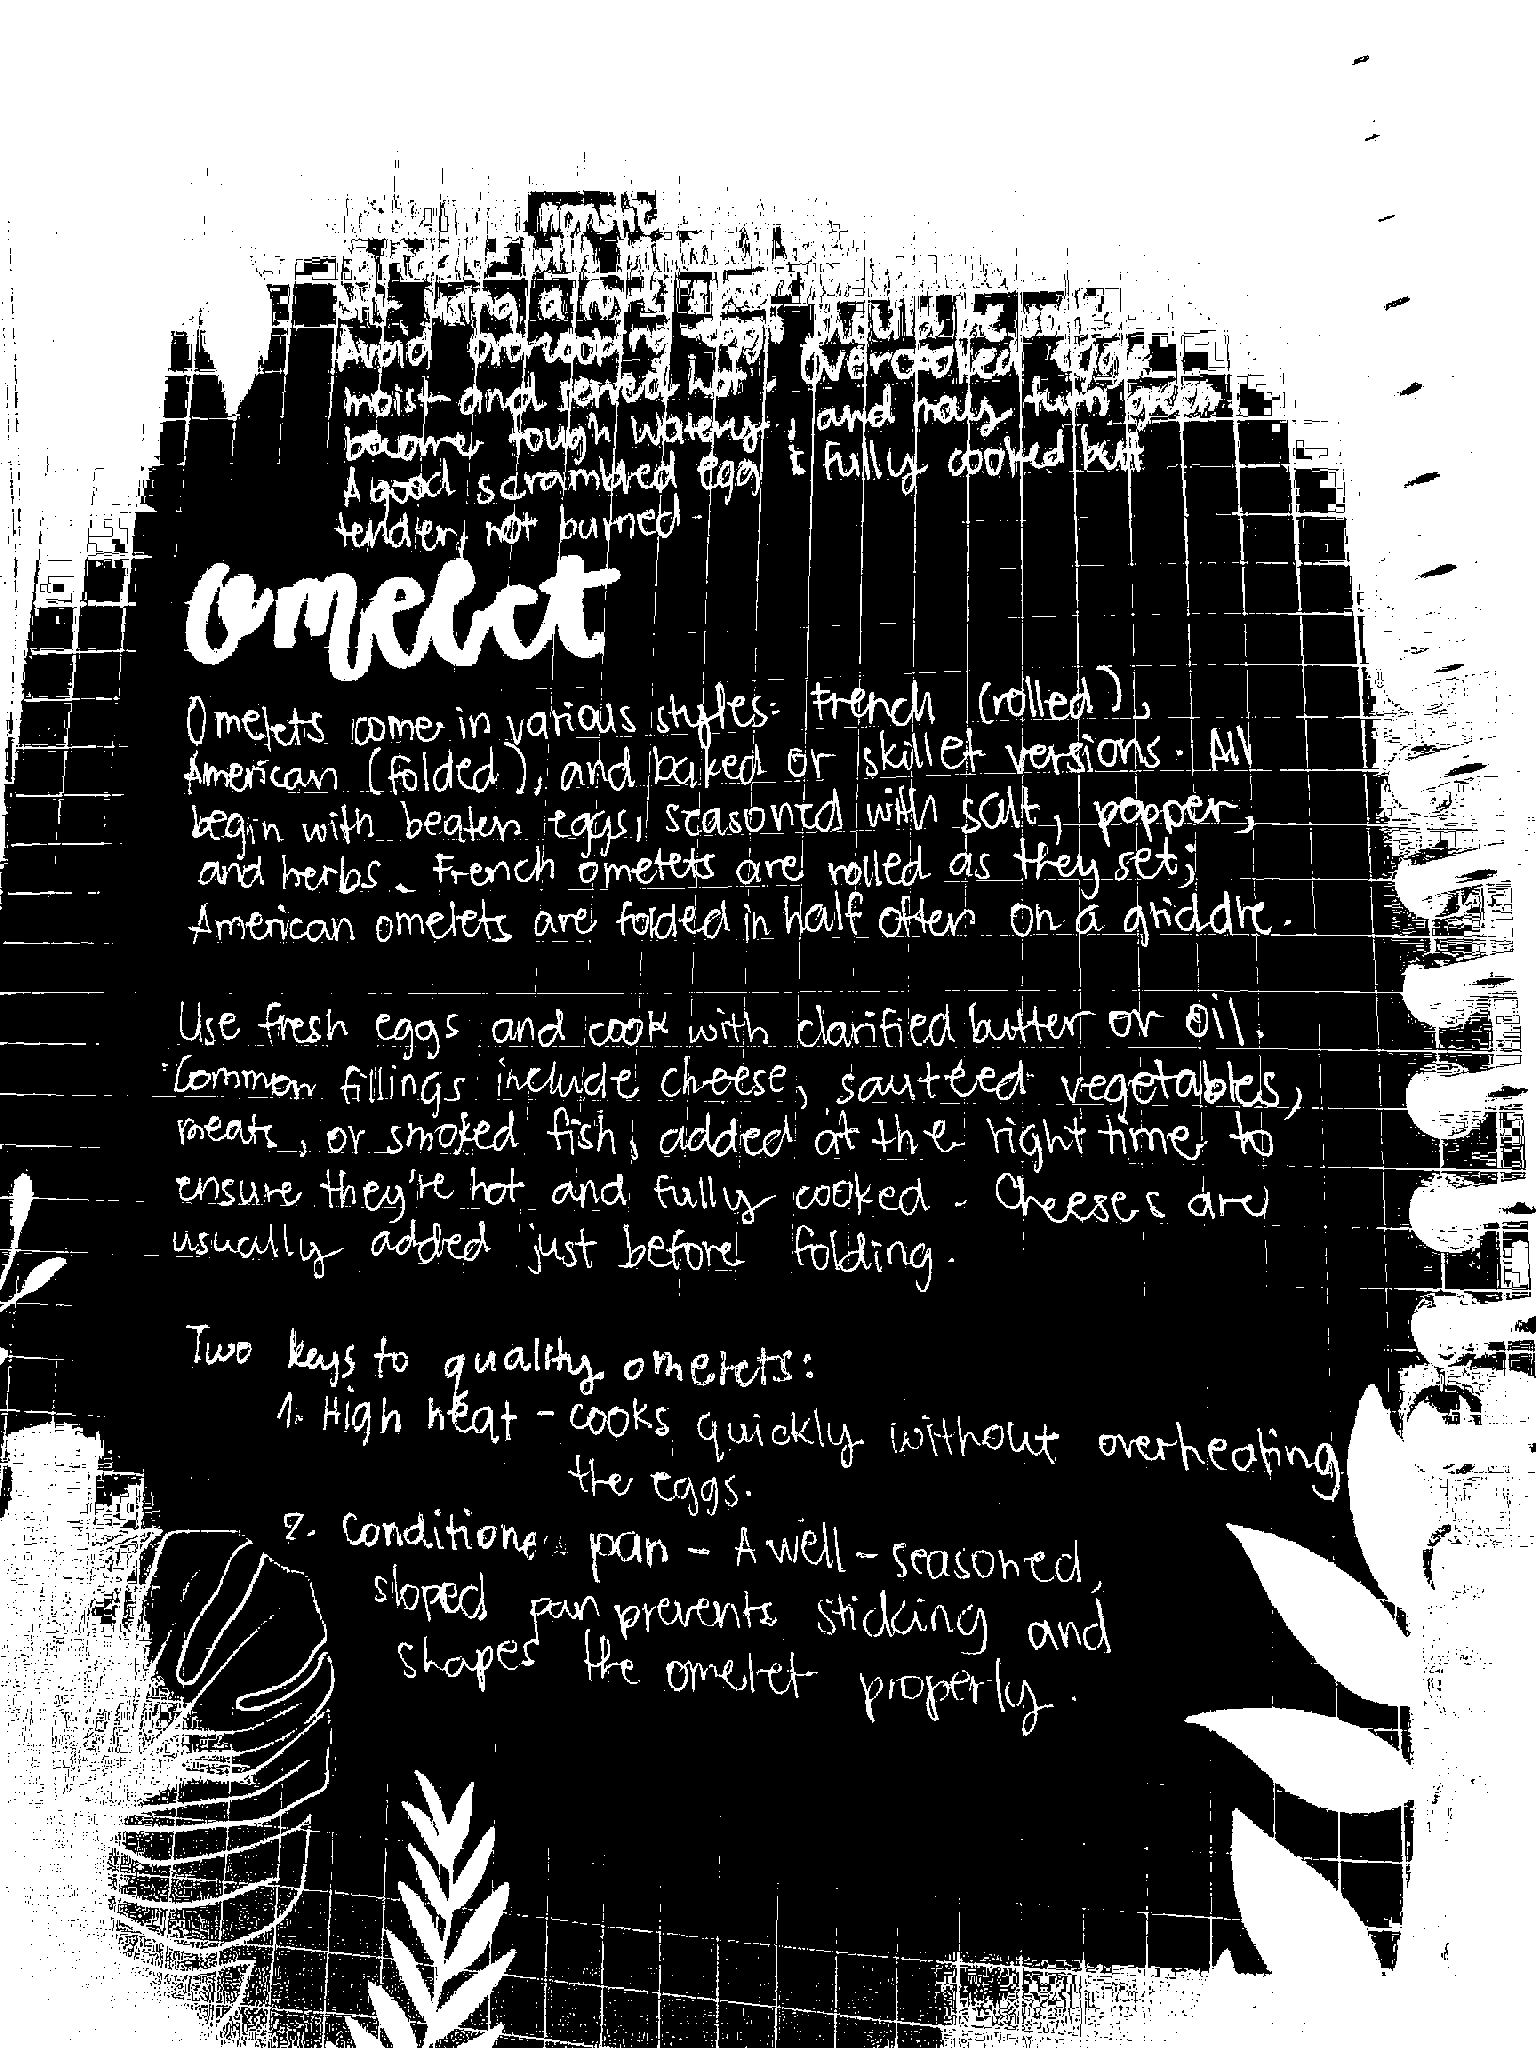 nonstic
griddle with
Stir using a
Avoid overcooking eggs should be soft,
moist and served hot. Overcooked eggs
become tough watery, and may turn green
A good scrambled egg is fully cooked but
tender, not burned.
Omelet
Omelets come in various styles: French (rolled),
American (folded), and baked or skillet versions. All
begin with beaten eggs, seasoned with salt, pepper,
and herbs. French omelets are rolled as they set;
American omelets are folded in half often on a griddle.
Use fresh eggs and cook with clarified butter or oil.
Common fillings include cheese, sautéed vegetables,
meats, or smoked fish, added at the right time to
ensure they're hot and fully cooked. Cheeses are
usually added just before folding.
Two keys to quality omelets:
1. High heat - cooks quickly without overheating
the eggs.
2. Conditione pan - A well-seasoned,
sloped pan prevents sticking and
shapes the omelet properly.